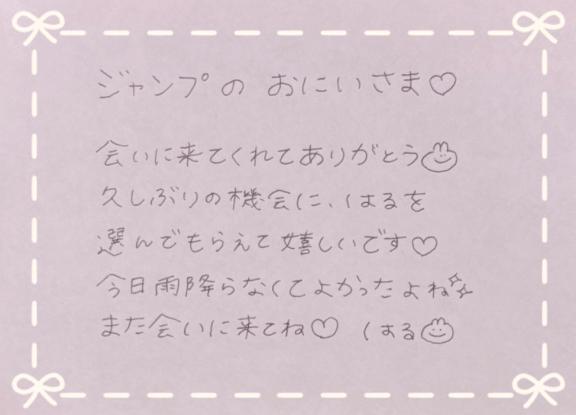 ジャンプの おにいさま♡
会いに来てくれてありがとう
久しぶりの機会に、はるを
選んでもらえて嬉しいです♡
今日雨降らなくてよかったよね
また会いに来てね♡ はる